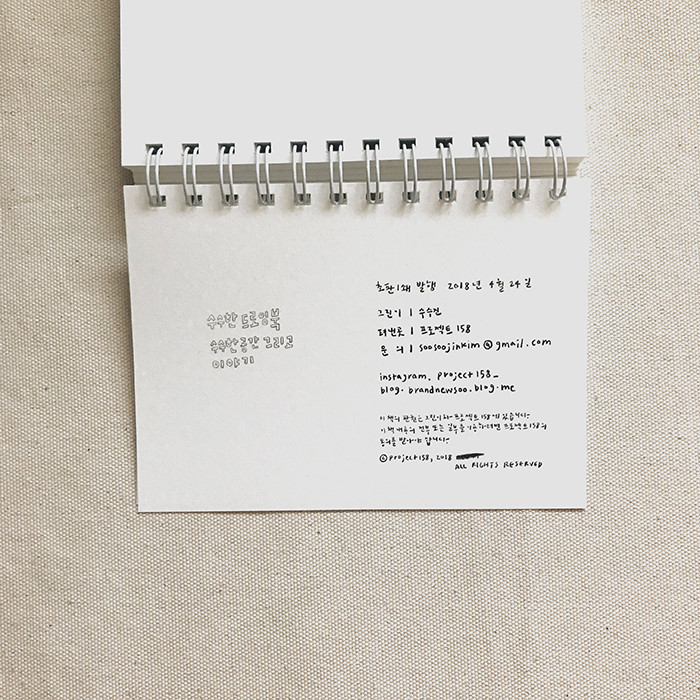 수수한 드로잉북
수수한 공간 그리고
이야기
초판 1쇄 발행 2018년 4월 24일
그린이 | 수수진
펴낸곳 | 프로젝트 158
문의 | soosoojinkim@gmail.com
instagram. project158_
blog. brandnewsoo.blog.me
이 책의 판권은 그린이와 프로젝트 158에 있습니다.
이 책 내용의 전부 또는 일부를 이용하려면 프로젝트 158의
동의를 받아야 합니다.
©project158, 2018
ALL RIGHTS RESERVED